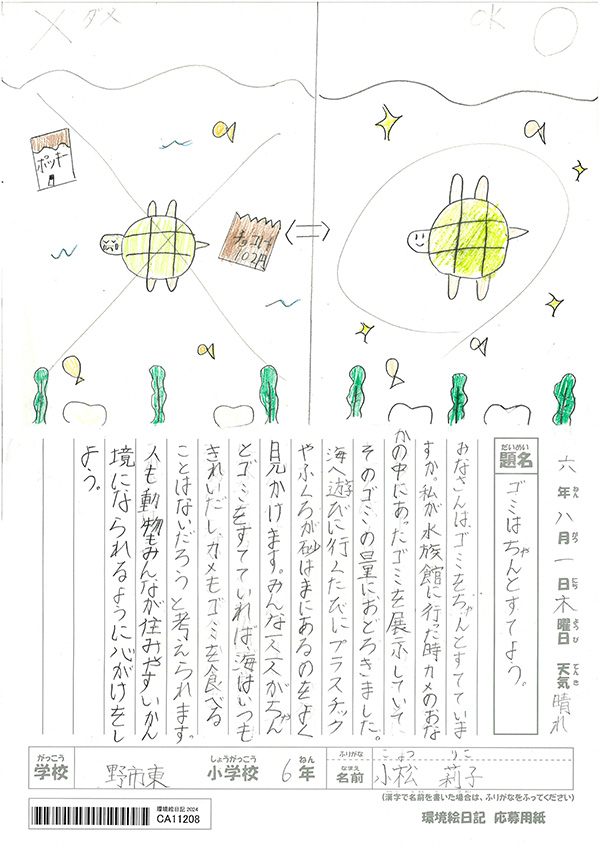 × ダメ
OK ○
ポッキー
チョコレート
102円
六年八月一日木曜日 天気 晴れ
ねん がつ にち ようび てんき
だいめい
題名
ゴミはちゃんとすてよう。
みなさんはゴミをちゃんとすてていま
すか。私が水族館に行った時カメのおな
かの中にあったゴミを展示していて、
そのゴミの量におどろきました。
海へ遊びに行くたびにプラスチック
やふくろが砂はまにあるのをよく
見かけます。みんな一人一人がちゃん
とゴミをすてていれば、海はいつも
きれいだし、カメもゴミを食べる
ことはないだろうと考えられます。
人も動物もみんなが住みやすいかん
境になられるように心がけをし
よう。
がっこう しょうがっこう ねん ふりがな こまつ りこ
学校 野市東 小学校 6年 なまえ 名前 小松 莉子
(漢字で名前を書いた場合は、ふりがなをふってください)
環境絵日記 2024
CA11208
環境絵日記 応募用紙